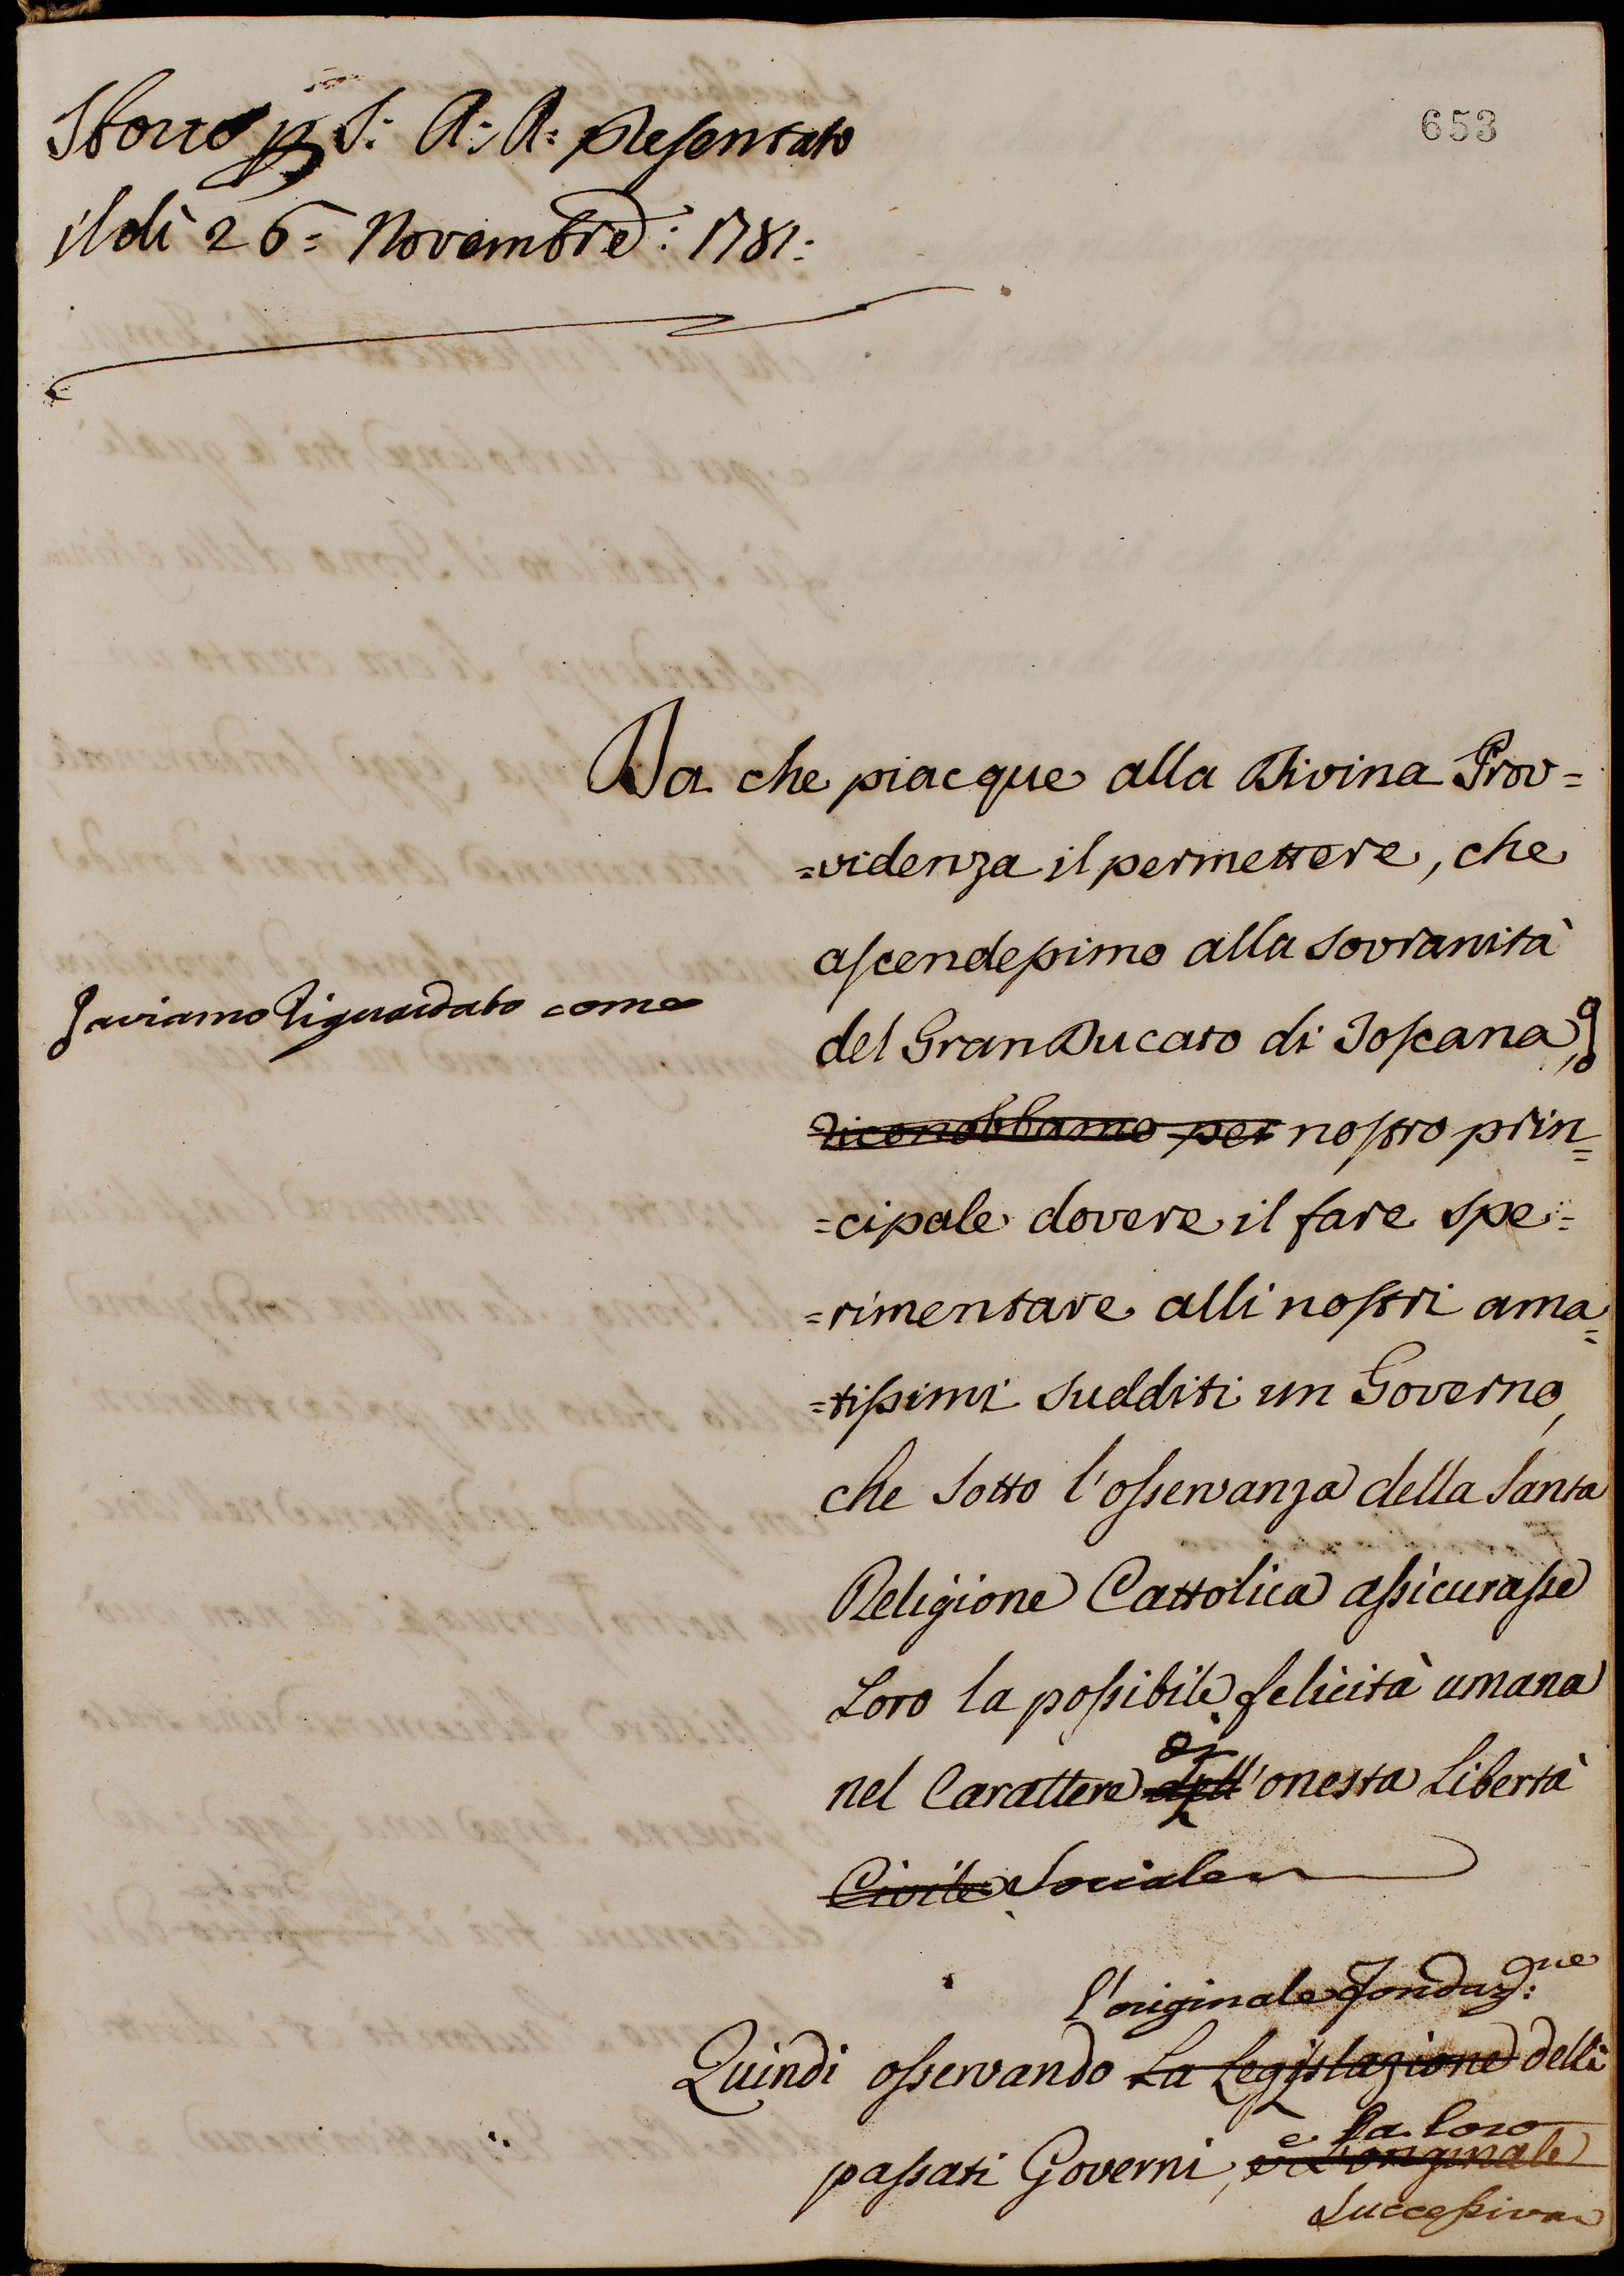 653
S: A: R: presentato
il dì 26= Novembre: 1781:
Da che piacque alla Divina Prov=
=videnza il permettere, che
ascendessimo alla sovranità
aviamo riguardato come
del Gran Ducato di Toscana,
riconobbamo per nostro prin=
=cipale dovere il fare spe=
=rimentare alli nostri ama=
=tissimi sudditi un Governo,
che sotto l'osservanza della Santa
Religione Cattolica assicurasse
Loro la possibile felicità umana
di
nel Carattere dell'onesta Libertà
Civile Sociale
l'originale Fondaz:ne
Quindi osservando La Legislazione delli
e la loro
passati Governi, e L'originale
Successiva